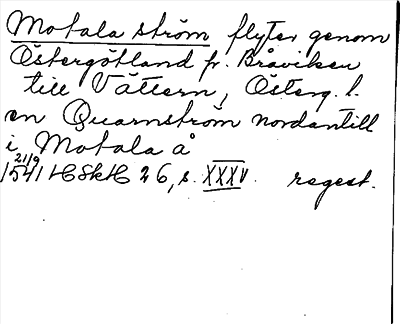 Motala ström flyter genom
Östergötland fr. Bråviken
till Vättern, Österg. l.
en Quarnström nordantill
i Motala å
21/9
1541 HSkH 26, s. XXXV. regest.